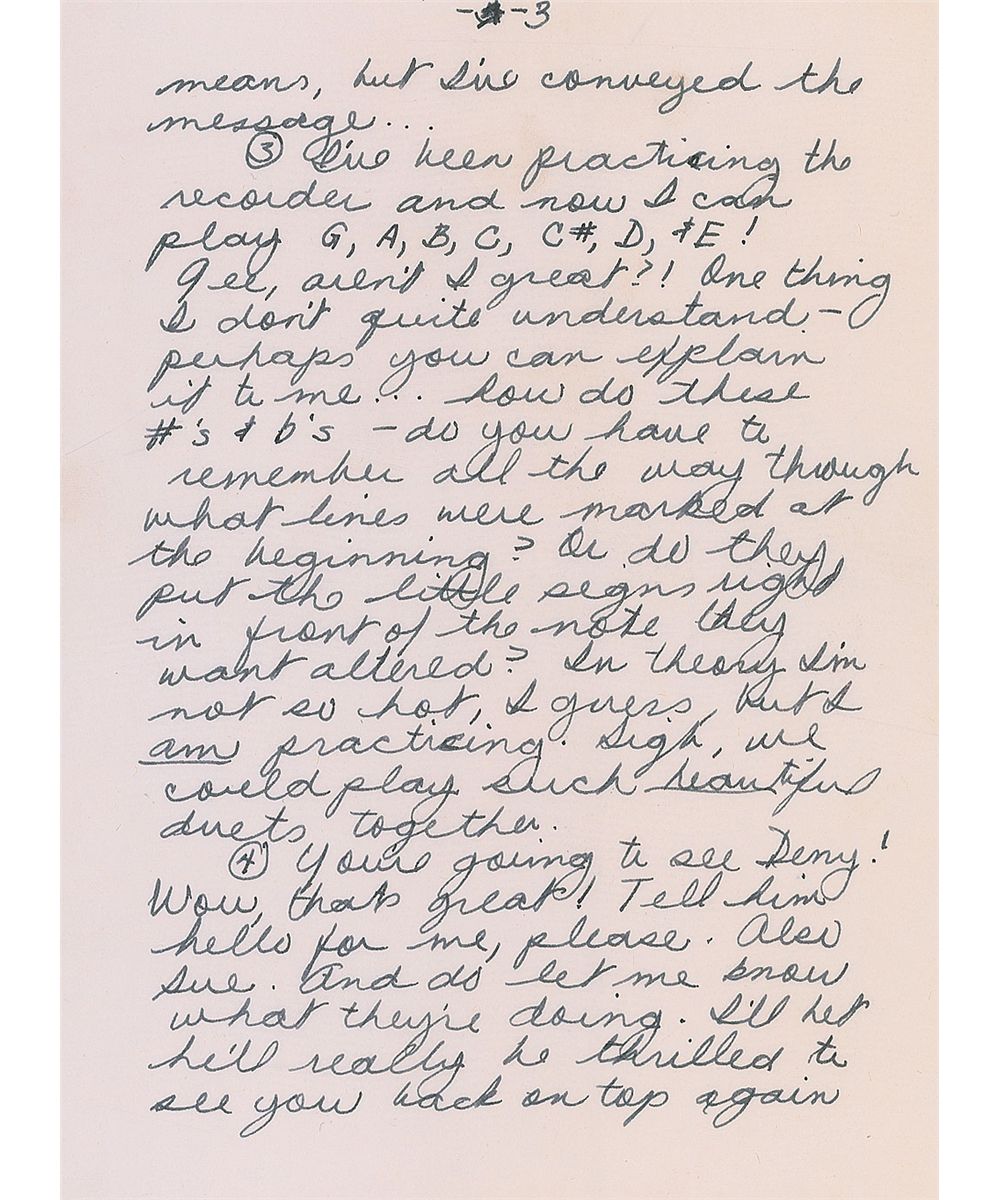 - -3
means, but I've conveyed the
message...
③ I've been practicing the
recorder and now I can
play G, A, B, C, C#, D, & E!
Gee, aren't I great?! One thing
I don't quite understand -
perhaps you can explain
it to me... how do these
#'s & b's - do you have to
remember all the way through
what lines were marked at
the beginning? Or do they
put the little signs right
in front of the note they
want altered? In theory I'm
not so hot, I guess, but I
am practicing. Sigh, we
could play such beautiful
duets together.
④ You're going to see Deny!
Wow, that's great! Tell him
hello for me, please. Also
Sue. And do let me know
what they're doing. I'll bet
he'll really be thrilled to
see you back on top again